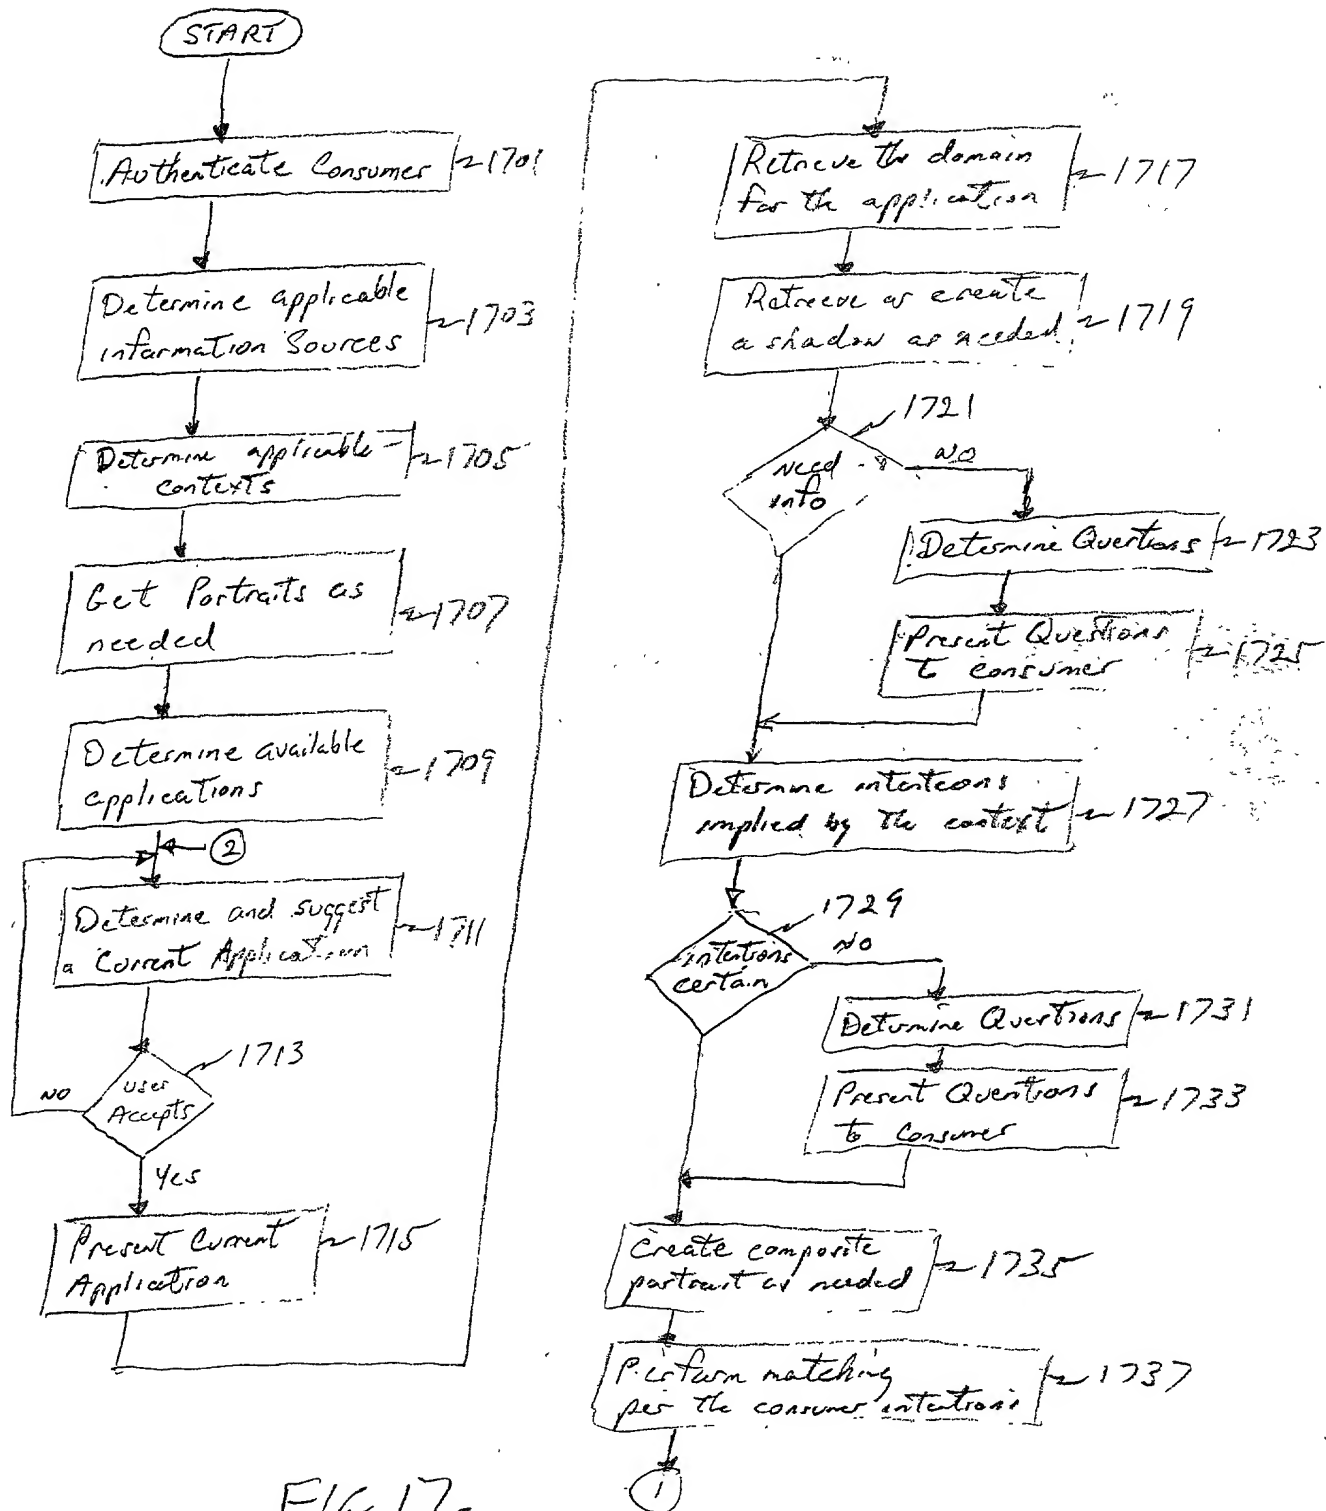 START
Authenticate Consumer 1701
Determine applicable
information Sources 1703
Determine applicable
contexts 1705
Get Portraits as
needed 1707
Determine available
applications 1709
2
Determine and suggest
a Current Application 1711
1713
User
Accepts
NO
Yes
Present Current
Application 1715
Retrieve the domain
for the application 1717
Retrieve or create
a shadow as needed 1719
1721
Need
info
NO
Determine Questions 1723
Present Questions
to consumer 1725
Determine intentions
implied by the context 1727
1729
intentions
certain
NO
Determine Questions 1731
Present Questions
to Consumer 1733
Create composite
portrait as needed 1735
Perform matching
per the consumer intentions 1737
1